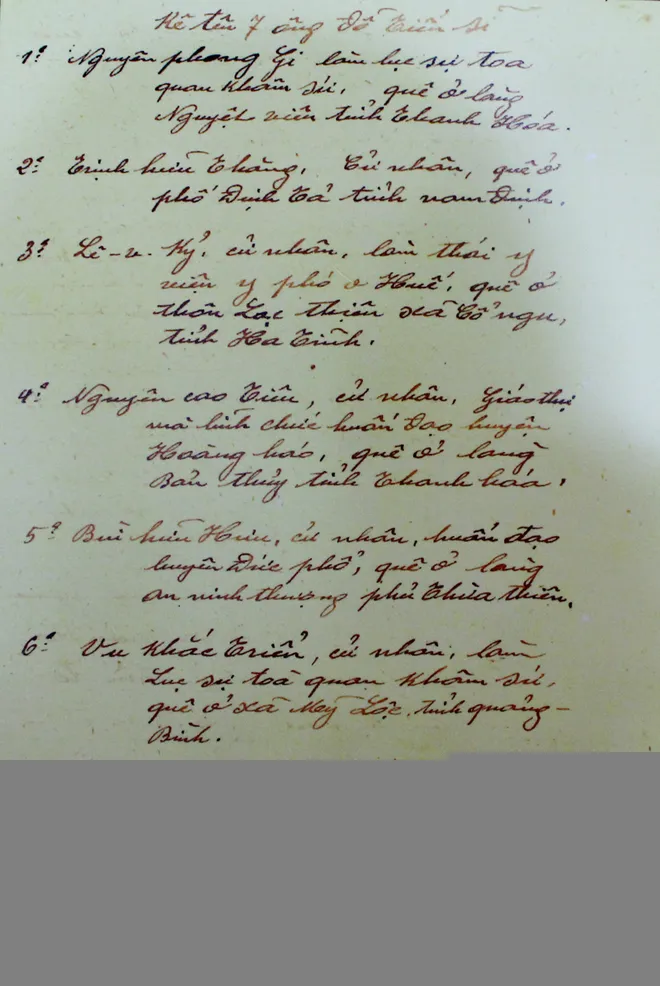 Kê tên 7 ông đỗ Tiến sĩ
1º Nguyên phong Gi làm lục sự toa
quan khâm sứ, quê ở làng
Nguyệt viên tỉnh Thanh Hóa.
2º Trịnh hữu Thăng, Cử nhân, quê ở
phố Định Tả tỉnh nam Định.
3º Lê-v. Kỷ, cử nhân, làm thái y
viện y phó ở Huế, quê ở
thôn Lạc thiện xã Cổ ngu,
tỉnh Ha Tĩnh.
4º Nguyên cao Tiêu, cử nhân, Giáo thụ
mà lĩnh chức huấn đạo huyện
Hoằng hóa, quê ở làng
Bản thủy tỉnh Thanh hóa.
5º Bùi hữu Hưu, cử nhân, huấn đạo
huyện Đức phổ, quê ở làng
an ninh thượng phủ Thừa thiên.
6º Vu Khắc Triển, cử nhân, làm
Lục sự toà quan Khâm sứ,
quê ở xã Mỹ Lộc, tỉnh quảng-
Bình.